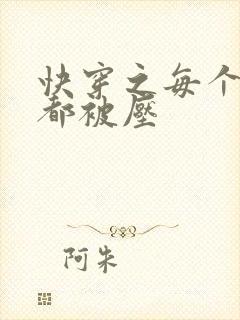 快穿之每个
都被壓
阿朱